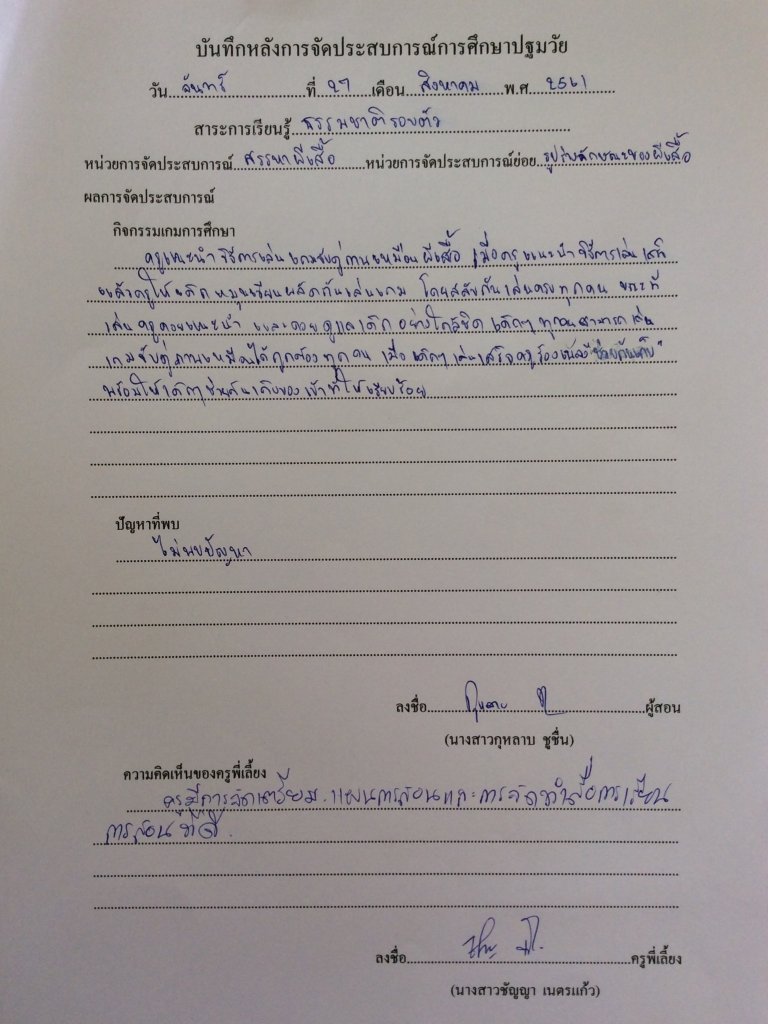 บันทึกหลังการจัดประสบการณ์การศึกษาปฐมวัย
วัน จันทร์ ที่ 27 เดือน สิงหาคม พ.ศ. 2561
สาระการเรียนรู้ ธรรมชาติรอบตัว
หน่วยการจัดประสบการณ์ สรรหาผีเสื้อ หน่วยการจัดประสบการณ์ย่อย รูปร่างลักษณะของผีเสื้อ
ผลการจัดประสบการณ์
กิจกรรมเกมการศึกษา
ครูแนะนำวิธีการเล่นเกมจับคู่ภาพเหมือนผีเสื้อ เมื่อครูแนะนำวิธีการเล่นเสร็จ
แล้วครูให้เด็กหมุนเวียนผลัดกันเล่นเกม โดยสลับกันเล่นครบทุกคน ขณะที่
เล่นครูคอยแนะนำ และคอยดูแลเด็กอย่างใกล้ชิด เด็กๆทุกคนสามารถเล่น
เกมจับคู่ภาพเหมือนได้ถูกต้องทุกคน เมื่อเด็กๆเล่นเสร็จครูร้องเพลง "ช่วยกันเก็บ"
พร้อมให้เด็กๆช่วยกันเก็บของเข้าที่ให้เรียบร้อย
ปัญหาที่พบ
ไม่พบปัญหา
ลงชื่อ กุหลาบ ผู้สอน
(นางสาวกุหลาบ ชูชื่น)
ความคิดเห็นของครูพี่เลี้ยง
ครูมีการจัดเตรียมแผนการสอนและการจัดทำสื่อการเรียน
การสอนที่ดี.
ลงชื่อ ครูพี่เลี้ยง
(นางสาวชัญญา เนตรแก้ว)